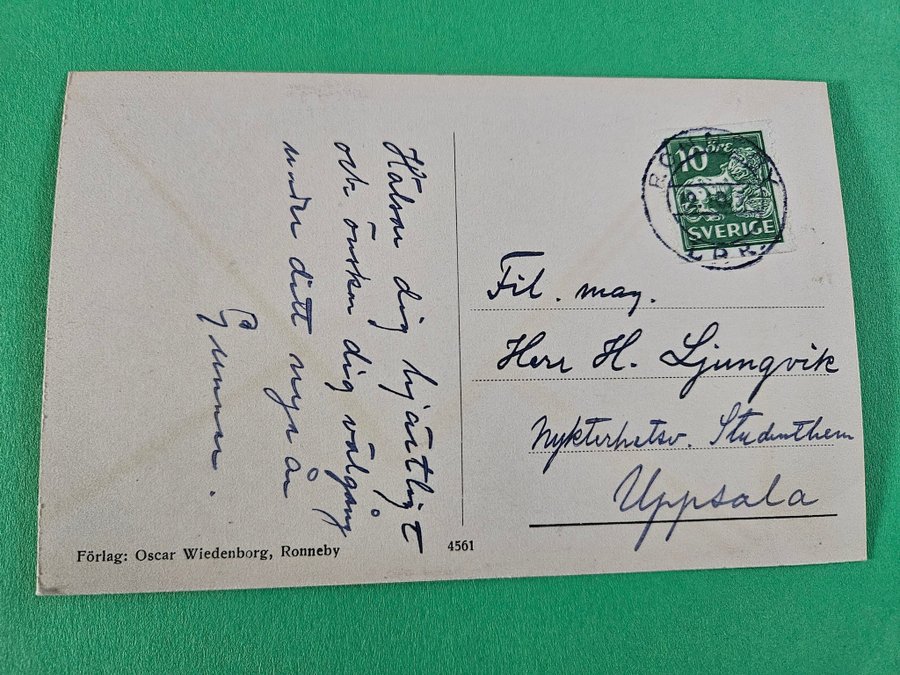 Hälsar dig hjärtligt
och önskar dig välgång
under ditt nya år
Gunnar.
10 öre
SVERIGE
RONNEBY
LBR.
Fil. mag.
Herr H. Ljungvik
Nykterhetsv. Studenthem
Uppsala
Förlag: Oscar Wiedenborg, Ronneby
4561